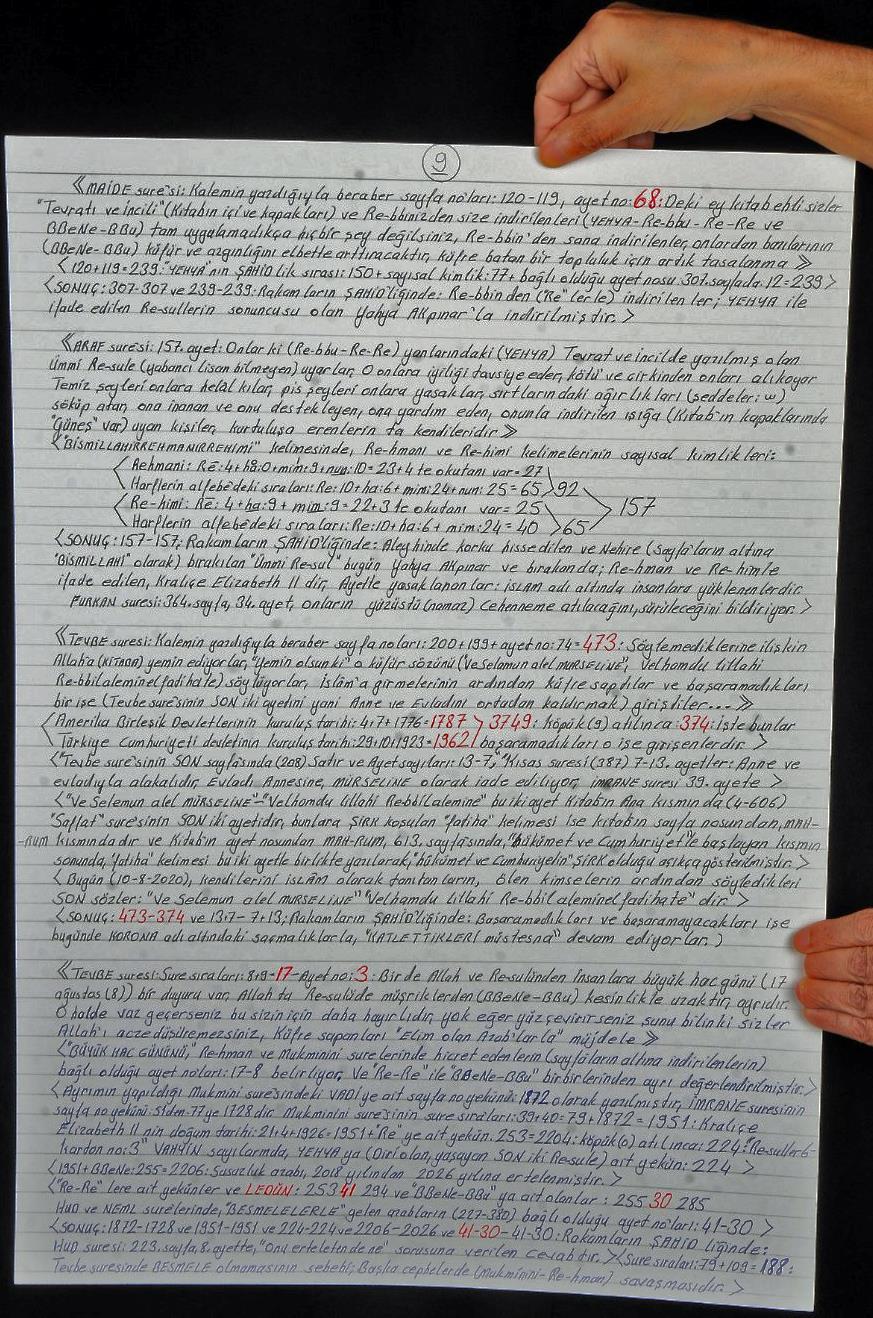 9
《MAİDE suresi: Kalemin yazdığıyla beraber sayfa no'ları: 120-119, ayet no: 68: Deki ey kitab ehli sizler
"Tevratı ve incili" (Kitabın içi ve kapakları) ve Re-bbinizden size indirilenleri (YEHYA-Re-bbu-Re-Re ve
BBeNe-BBu) tam uygulamadıkça hiçbir şey değilsiniz, Re-bbin'den sana indirilenler, onlardan bazılarının
(BBeNe-BBu) küfür ve azgınlığını elbette arttıracaktır, küfre batan bir topluluk için artık tasalanma》
<120+119=239: YEHYA'nın ŞAHİDlik sırası: 150+sayısal kimlik: 77+ bağlı olduğu ayet nosu 307.sayfada: 12=239>
<SONUÇ: 307-307 ve 239-239: Rakamların ŞAHİD'liğinde: Re-bbinden ("Re" lerle) indirilenler; YEHYA ile
ifade edilen Re-sullerin sonuncusu olan Yahya Akpınar'la indirilmiştir.>
《ARAF suresi: 157. ayet: Onlar ki (Re-bbu-Re-Re) yanlarındaki (YEHYA) Tevrat ve incilde yazılmış olan
Ümmi Re-sule (yabancı lisan bilmeyen) uyarlar, O onlara iyiliği tavsiye eder, kötü ve çirkinden onları alıkoyar
Temiz şeyleri onlara helal kılar, pis şeyleri onlara yasaklar, sırtlarındaki ağırlıkları (şeddeleri: ω)
söküp atar, ona inanan ve onu destekleyen, ona yardım eden, onunla indirilen ışığa (Kitab'ın kapaklarında
"Güneş" var) uyan kişiler, kurtuluşa erenlerin ta kendileridir》
<"BİSMİLLAHİRREHMANİRREHİMİ" kelimesinde, Re-hmani ve Re-himi kelimelerinin sayısal kimlikleri:
<Rehmani: Re: 4+ha: 0+mim: 9+nun: 10=23+4 te okutanı var=27
Harflerin alfebedeki sıraları: Re: 10+ha: 6+mim: 24+nun: 25=65> 92
<Re-himi: Re: 4+ha: 9+mim: 9=22+3 te okutanı var=25
Harflerin alfebedeki sıraları: Re: 10+ha: 6+mim: 24=40 >65 > 157
<SONUÇ: 157-157; Rakamların ŞAHİD'liğinde: Aleyhinde korku hissedilen ve Nehire (Sayfa'ların altına
"BİSMİLLAHİ" olarak) bırakılan "Ümmi Re-sul" bugün Yahya Akpınar ve bırakanda; Re-hman ve Re-himle
ifade edilen, Kraliçe Elizabeth II dir, Ayetle yasaklananlar: İSLAM adı altında insanlara yüklenenlerdir
FURKAN suresi: 364. sayfa, 34. ayet, onların yüzüstü (namaz) Cehenneme atılacağını, sürüleceğini bildiriyor.>
《TEVBE suresi: Kalemin yazdığıyla beraber sayfa noları: 200+199+ayet no: 74=473: Söylemediklerine ilişkin
Allah'a (KİTABA) yemin ediyorlar, "Yemin olsunki" o küfür sözünü ("Ve Selamun alel MÜRSELİNE", Velhamdu lillahi
Re-bbil aleminel fadiha'te) söylüyorlar, İslâm'a girmelerinin ardından küfre saptılar ve başaramadıkları
bir işe (Tevbe sure'sinin SON iki ayetini yani Anne ve Evladını ortadan kaldırmak) giriştiler...》
<Amerika Birleşik Devletlerinin kuruluş tarihi: 4+7+1776=1787 > 3749: köpük (9) atılınca: 374: İşte bunlar
Türkiye Cumhuriyeti devletinin kuruluş tarihi: 29+10+1923=1962 başaramadıkları o işe girişenlerdir.>
<"Tevbe sure'sinin SON sayfa'sında (208) Satır ve Ayet sayıları: 13-7," Kısas suresi (387) 7-13. ayetler: Anne ve
evladıyla alakalıdır, Evladı Annesine, MÜRSELİNE olarak iade ediliyor, İMRANE suresi 39. ayete>
<"Ve Selemun alel MÜRSELİNE"-"Velhamdu lillahi Re-bbil alemine" bu iki ayet Kitabın Ana kısmında (4-606)
"Saffat" suresinin SON iki ayetidir, bunlara ŞİRK koşulan "fatiha" kelimesi ise kitabın sayfa nosundan, MAH-
-RUM kısmındadır ve Kitab'ın ayet nosundan MAH-RUM, 613. sayfa'sında, "hükümet ve Cumhuriyet"le başlayan kısmın
sonunda, "fatiha" kelimesi bu iki ayetle birlikte yazılarak, "hükümet ve Cumhuriyetin" ŞİRK olduğu açıkça gösterilmiştir.>
<Bugün (10-8-2020), kendilerini İSLAM olarak tanıtanların, ölen kimselerin ardından söyledikleri
SON sözler: "Ve Selemun alel MÜRSELİNE" "Velhamdu lillahi Re-bbil aleminel fadihate" dir.>
<SONUÇ: 473-374 ve 13-7-7+13; Rakamların ŞAHİD'liğinde: Başaramadıkları ve başaramayacakları işe
bugünde KORONA adı altındaki saçmalıklarla, "KATLETTİKLERİ müstesna" devam ediyorlar.)
《TEVBE suresi: Sure sıraları: 8+9-17-Ayet no: 3: Birde Allah ve Re-sulünden İnsanlara büyük hac günü (17
ağustos (8)) bir duyuru var, Allah ta Re-sulü'de müşriklerden (BBeNe-BBu) kesinlikle uzaktır, ayrıdır.
O halde vaz geçerseniz bu sizin için daha hayırlıdır, yok eğer yüz çevirirseniz şunu bilinki sizler
Allah'ı acze düşüremezsiniz, Küfre sapanları "Elim olan Azab'larla" müjdele》
<"BÜYÜK HAC GÜNÜNÜ," Re-hman ve Mukminini surelerinde hicret edenlerin (sayfa'ların altına indirilenlerin)
bağlı olduğu ayet no'ları: 17-8 belirliyor, Ve "Re-Re" ile "BBeNe-BBu" birbirlerinden ayrı değerlendirilmiştir.>
<Ayrımın yapıldığı Mukmini suresindeki VADİ'ye ait sayfa no yekünü: 1872 olarak yazılmıştır, İMRANE suresinin
sayfa no yekünü: 51 den-77 ye 1728 dir Mukminini sure'sinin sure sıraları: 39+40=79+1872=1951: Kraliçe
Elizabeth II nin doğum tarihi: 21+4+1926=1951+"Re" ye ait yekün: 253=2204: köpük (0) atılınca: 224: "Re-suller 6-
karton no: 3" VAHYİN sayılarında, YEHYA'ya (Diri olan, yaşayan SON iki Re-sule) ait yekün: 224>
<1951+BBeNe: 255=2206: Susuzluk azabı, 2018 yılından 2026 yılına ertelenmiştir.>
<"Re-Re" lere ait yekünler ve LEDÜN: 253 41 294 ve "BBeNe-BBu" ya ait olanlar: 255 30 285
HUD ve NEML sure'lerinde, "BESMELELERLE" gelen azabların (227-380) bağlı olduğu ayet no'ları: 41-30>
<SONUÇ: 1872-1728 ve 1951-1951 ve 224-224 ve 2206-2026 ve 41-30-41-30: Rakamların ŞAHİD liğinde:
HUD suresi: 223. sayfa, 8. ayette, "Onu erteleten de ne" sorusuna verilen cevabtır.> <Sure sıraları: 79+109=188:
Tevbe suresinde BESMELE olmamasının sebebi; Başka cephelerde (Mukminini-Re-hman) savaşmasıdır.>